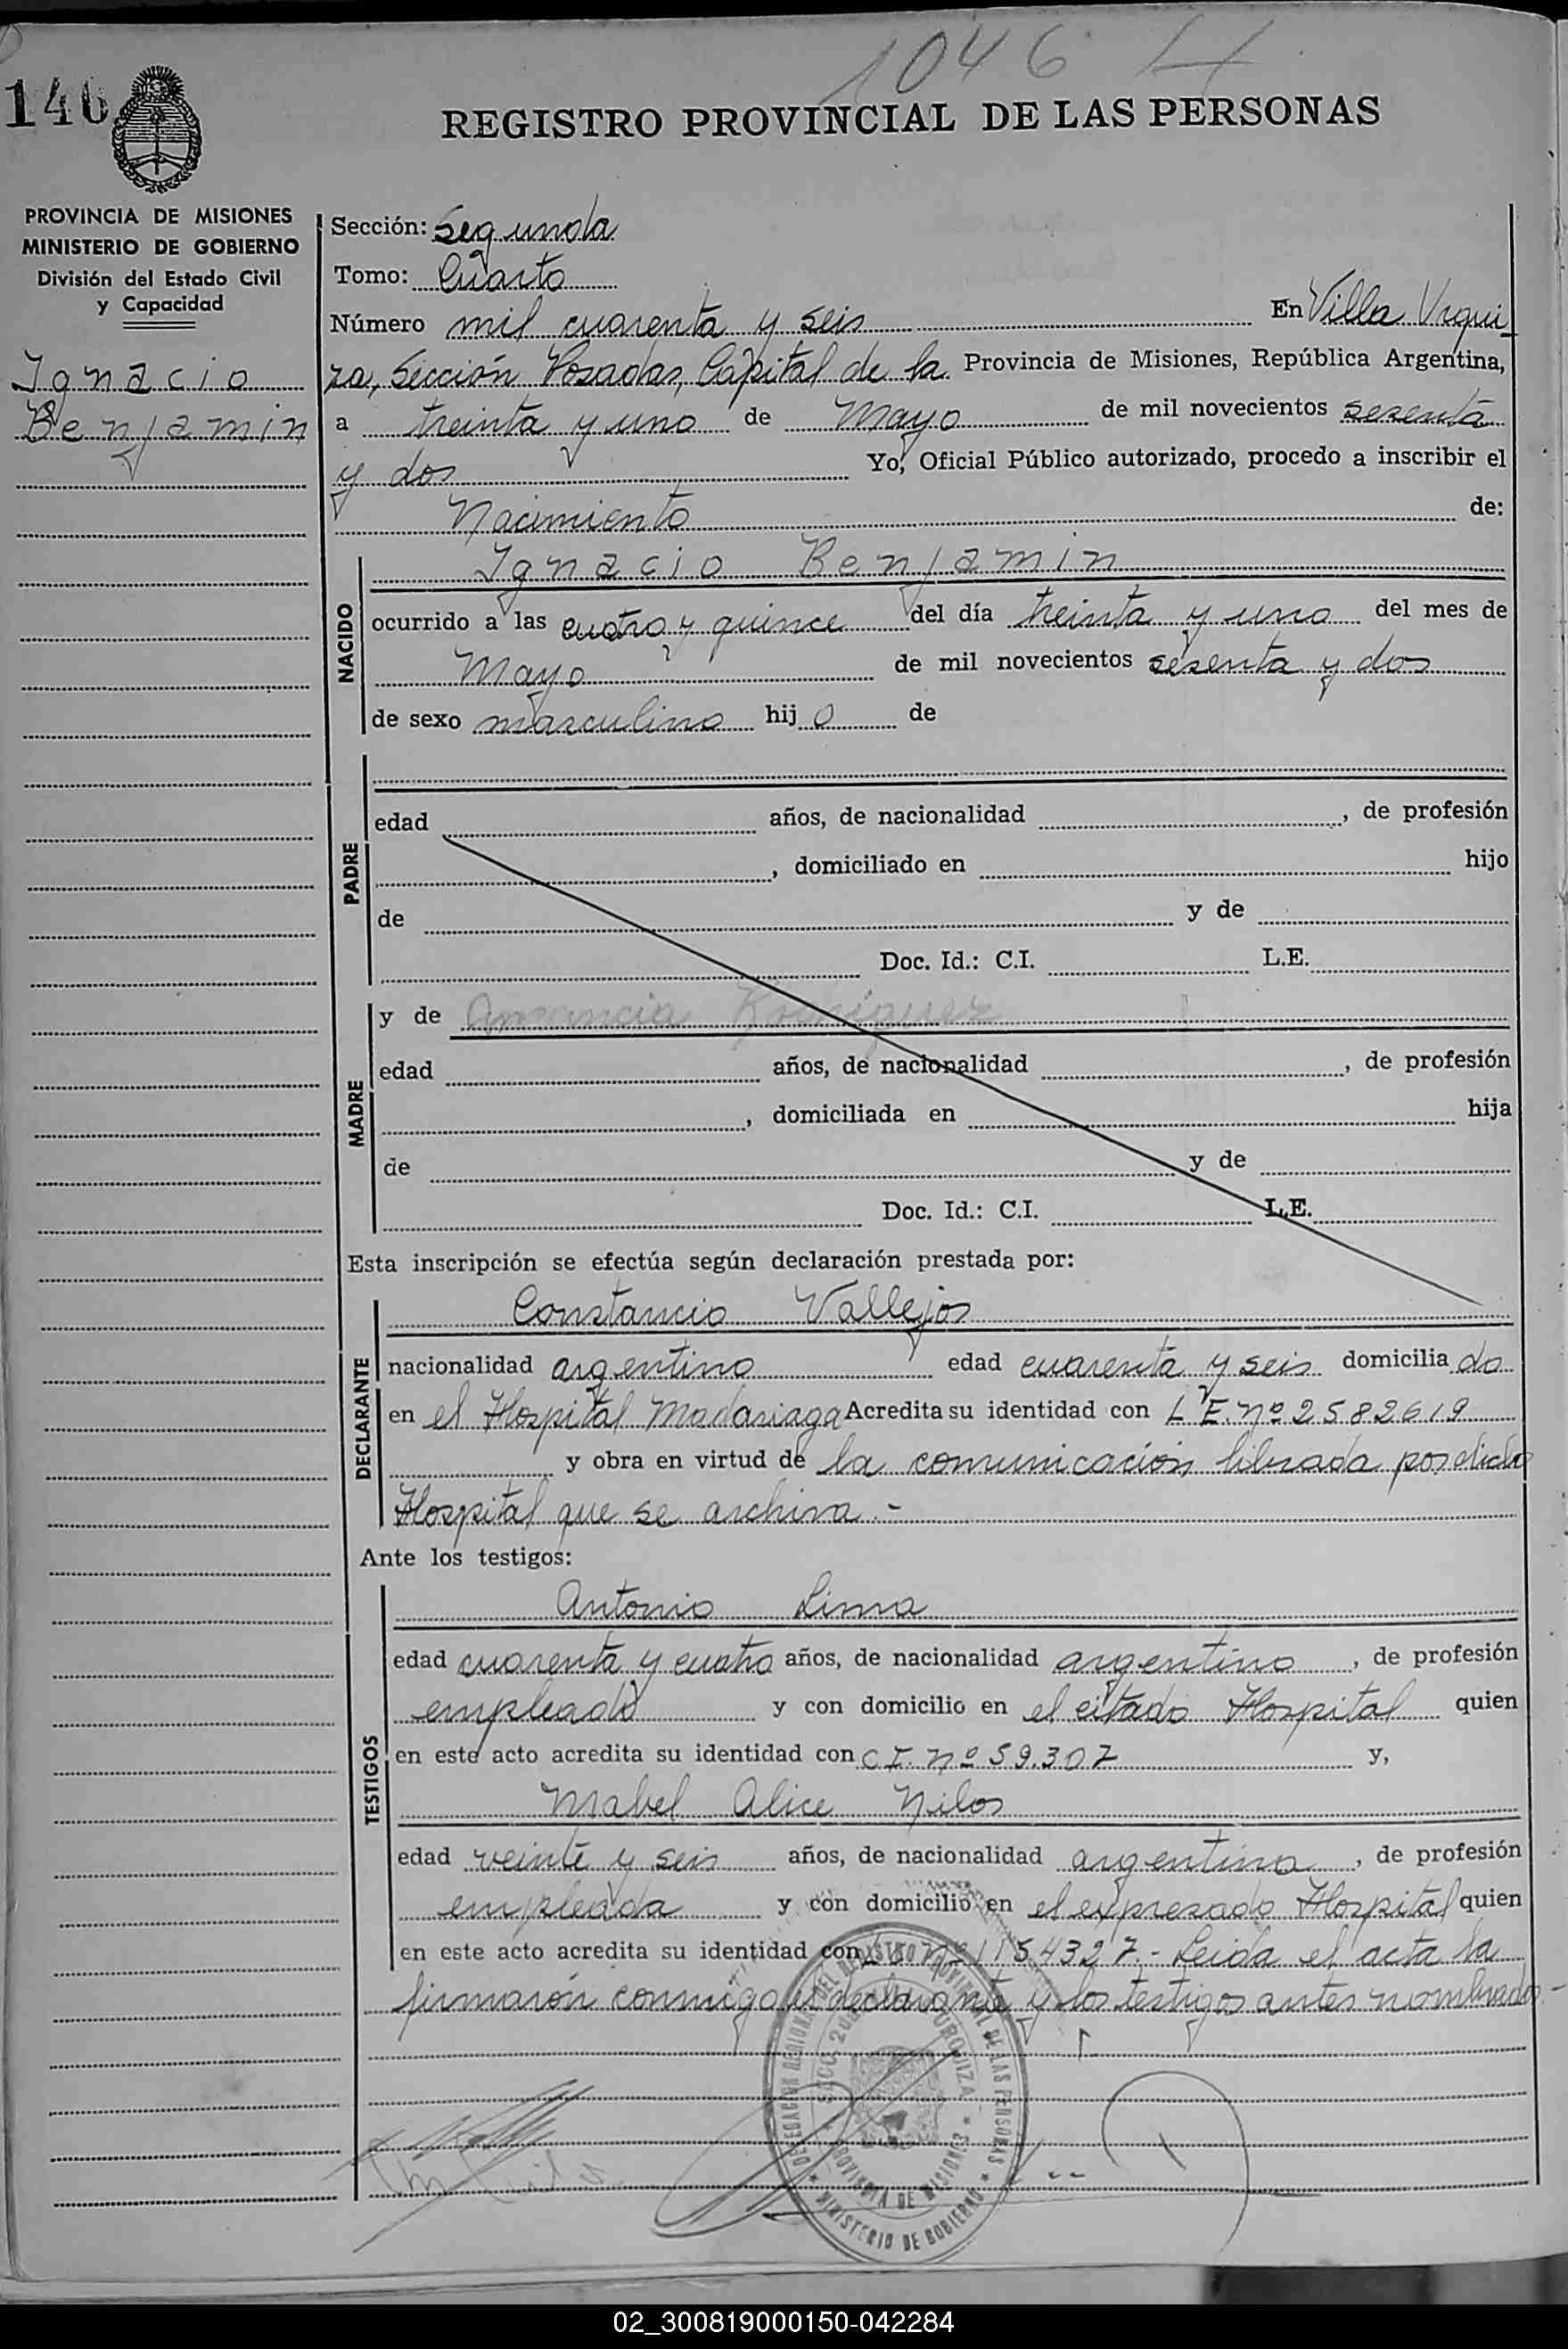 1046
146
REGISTRO PROVINCIAL DE LAS PERSONAS
PROVINCIA DE MISIONES
MINISTERIO DE GOBIERNO
División del Estado Civil
y Capacidad
Ignacio
Benjamin
Sección: Segunda
Tomo: Cuarto
Número mil cuarenta y seis En Villa Urqui
za, Sección Posadas, Capital de la Provincia de Misiones, República Argentina,
a treinta y uno de Mayo de mil novecientos sesenta
y dos Yo, Oficial Público autorizado, procedo a inscribir el
Nacimiento de:
NACIDO
Ignacio Benjamin
ocurrido a las cuatro y quince del día treinta y uno del mes de
Mayo de mil novecientos sesenta y dos
de sexo masculino hijo de
PADRE
edad años, de nacionalidad , de profesión
, domiciliado en hijo
de y de
Doc. Id.: C.I. L.E.
MADRE
y de Amancia Rodriguez
edad años, de nacionalidad , de profesión
, domiciliada en hija
de y de
Doc. Id.: C.I. L.E.
Esta inscripción se efectúa según declaración prestada por:
DECLARANTE
Constancio Vallejos
nacionalidad argentino edad cuarenta y seis domiciliado
en el Hospital Madariaga Acredita su identidad con L.E. nº 2582619
y obra en virtud de la comunicación librada por dicho
Hospital que se archiva.-
Ante los testigos:
TESTIGOS
Antonio Lima
edad cuarenta y cuatro años, de nacionalidad argentino, de profesión
empleado y con domicilio en el citado Hospital quien
en este acto acredita su identidad con C.I. nº 59.307 y,
Mabel Alice Nilos
edad veinte y seis años, de nacionalidad argentina, de profesión
empleada y con domicilio en el expresado Hospital quien
en este acto acredita su identidad con nº 1154327.- Leida el acta la
firmarón conmigo el declarante y los testigos antes nombrados.-
DELEGACION REGIONAL DEL REGISTRO PROVINCIAL DE LAS PERSONAS
URQUIZA
PROVINCIA DE MISIONES
MINISTERIO DE GOBIERNO
02_300819000150-042284